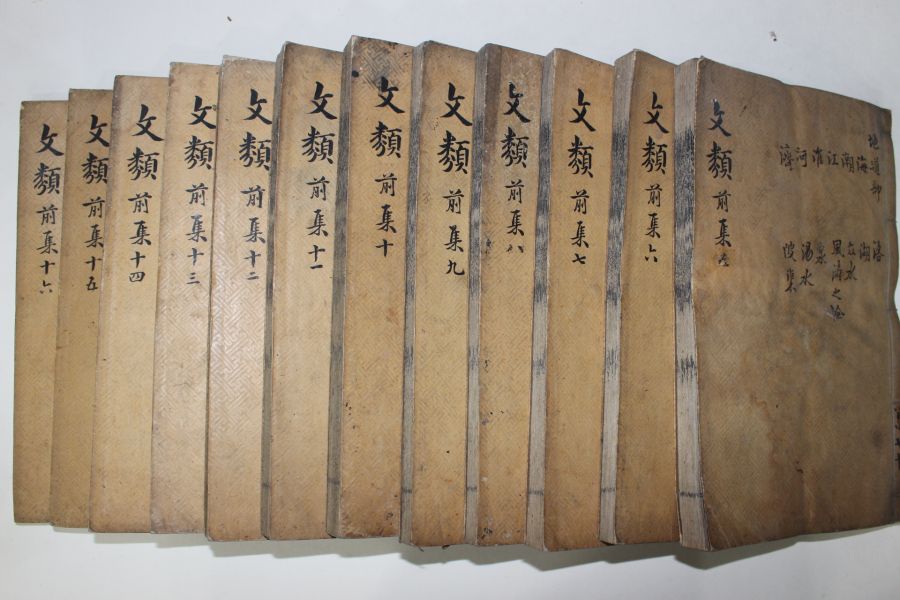 地道部
海
潮
江
淮
河
濟
洛
湖
水
風濤之險
泉
湯水
文類 前集 五
文類 前集 六
文類 前集 七
文類 前集 八
文類 前集 九
文類 前集 十
文類 前集 十一
文類 前集 十二
文類 前集 十三
文類 前集 十四
文類 前集 十五
文類 前集 十六